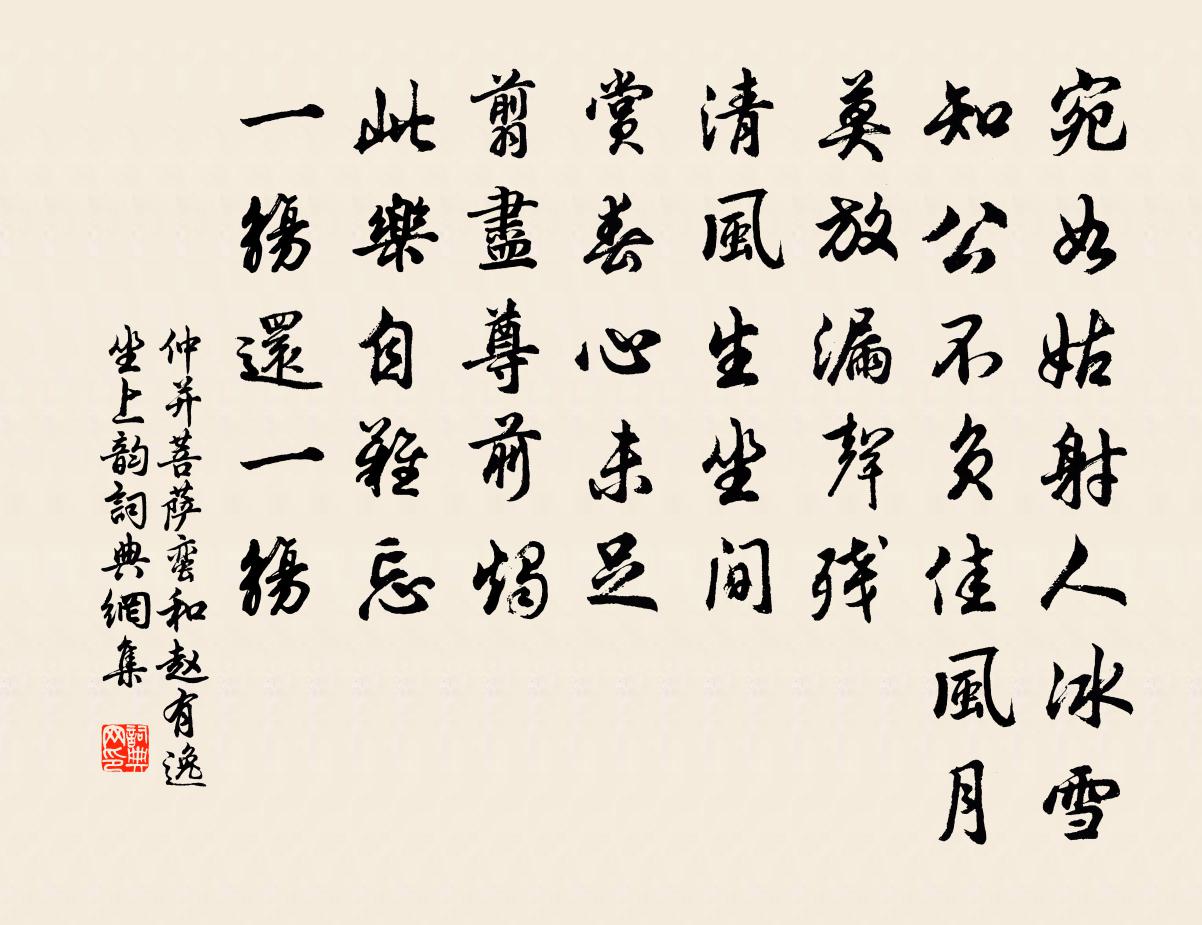 宛如姑射人冰雪
知公不负佳風月
莫放漏聲残
清風生坐间
賞春心未足
翦盡尊前燭
此樂自難忘
一觴還一觴
仲并菩萨蛮和赵有逸
坐上韵詞典網集
詞典网印